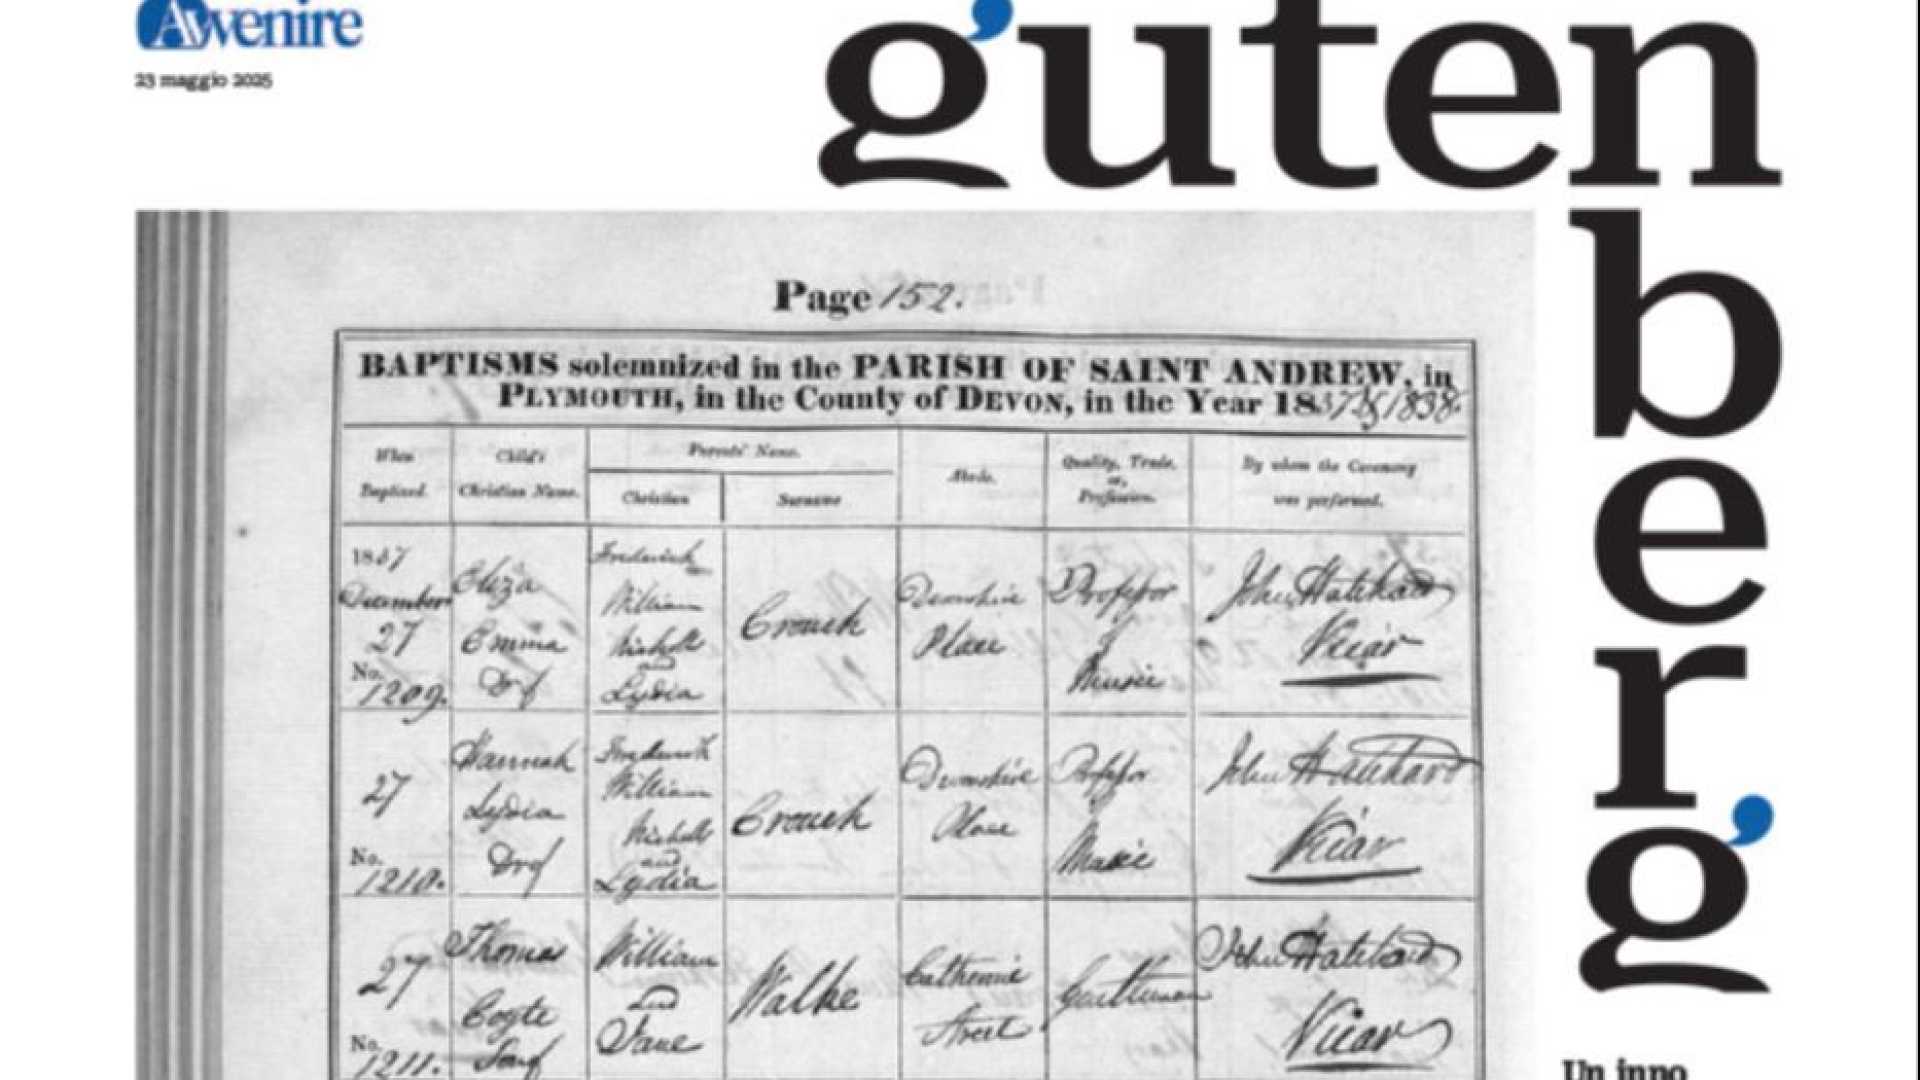 Avvenire
23 maggio 2025
guten
berg
Page 152.
BAPTISMS solemnized in the PARISH OF SAINT ANDREW, in
PLYMOUTH, in the County of DEVON, in the Year 1837 & 1838.
When Baptized.
Child's Christian Name.
Parents' Name.
Christian
Surname
Abode.
Quality, Trade, or, Profession.
By whom the Ceremony was performed.
1837
December
27
No.
1209.
Eliza
Emma
Frederick
William
Nicholls
and
Lydia
Crouch
Devonshire
Place
Professor
of
Music
John Hatchard
Vicar
27
No.
1210.
Hannah
Lydia
Frederick
William
Nicholls
and
Lydia
Crouch
Devonshire
Place
Professor
of
Music
John Hatchard
Vicar
27
No.
1211.
Thomas
William
and
Jane
Catherine
Street
Gentleman
John Hatchard
Vicar
Un inno